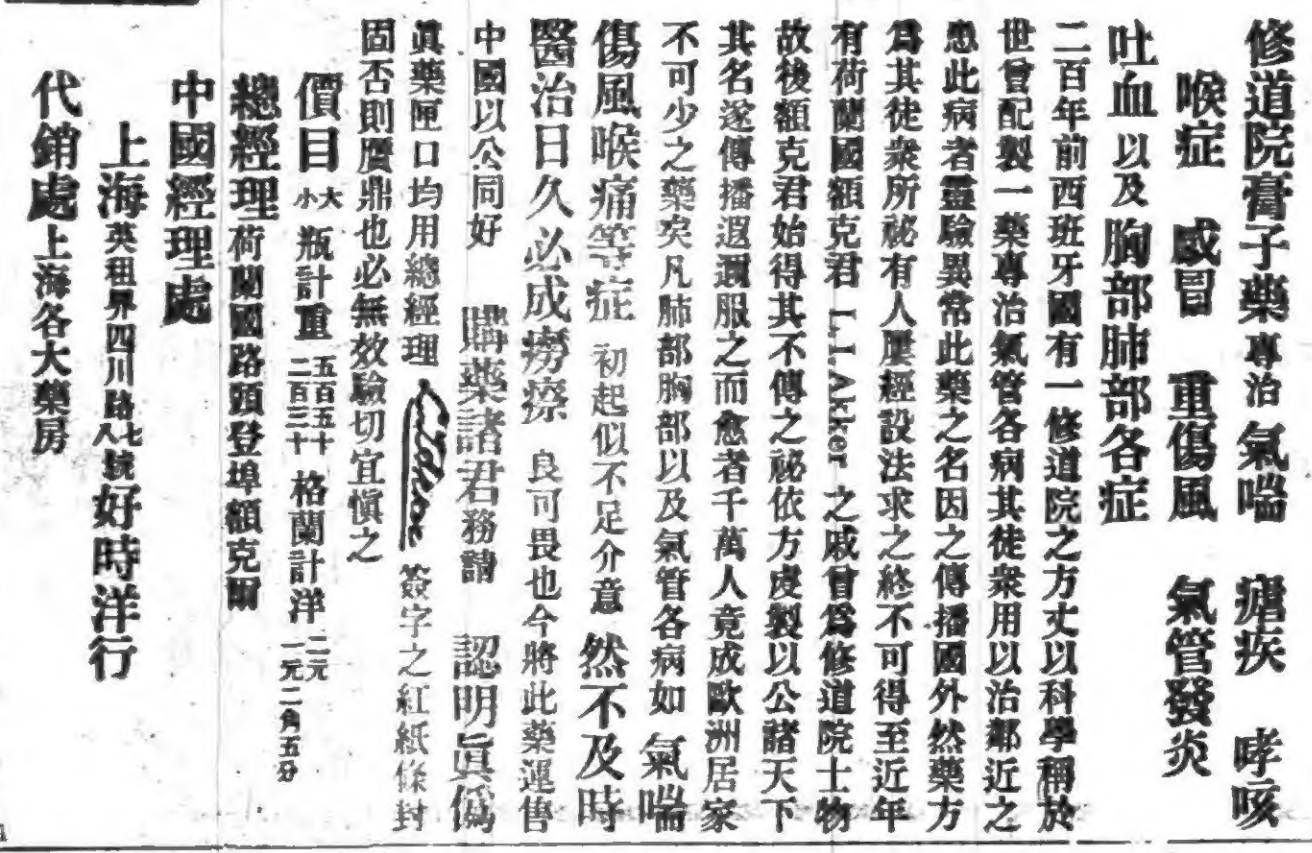 修道院膏子藥專治 氣喘 瘧疾 哮咳
喉症 感冒 重傷風 氣管發炎
吐血 以及 胸部肺部各症
二百年前西班牙國有一修道院之方丈以科學稱於
世曾配製一藥專治氣管各病其徒衆用以治鄰近之
患此病者靈驗異常此藥之名因之傳播國外然藥方
爲其徒衆所祕有人屢經設法求之終不可得至近年
有荷蘭國額克君 L.I.Akker 之戚曾爲修道院士物
故後額克君始得其不傳之祕依方虔製以公諸天下
其名遂傳播遐邇服之而愈者千萬人竟成歐洲居家
不可少之藥矣凡肺部胸部以及氣管各病如 氣喘
傷風喉痛等症 初起似不足介意 然不及時
醫治日久必成癆瘵 良可畏也今將此藥運售
中國以公同好 購藥諸君務請 認明眞僞
眞藥匣口均用總經理 簽字之紅紙條封
固否則贋鼎也必無效驗切宜愼之
價目 大小瓶計重 五百五十 二百三十 格蘭計洋 二元 一元二角五分
總經理 荷蘭國路頭登埠額克爾
中國經理處
上海 英租界四川路七八號 好時洋行
代銷處 上海各大藥房